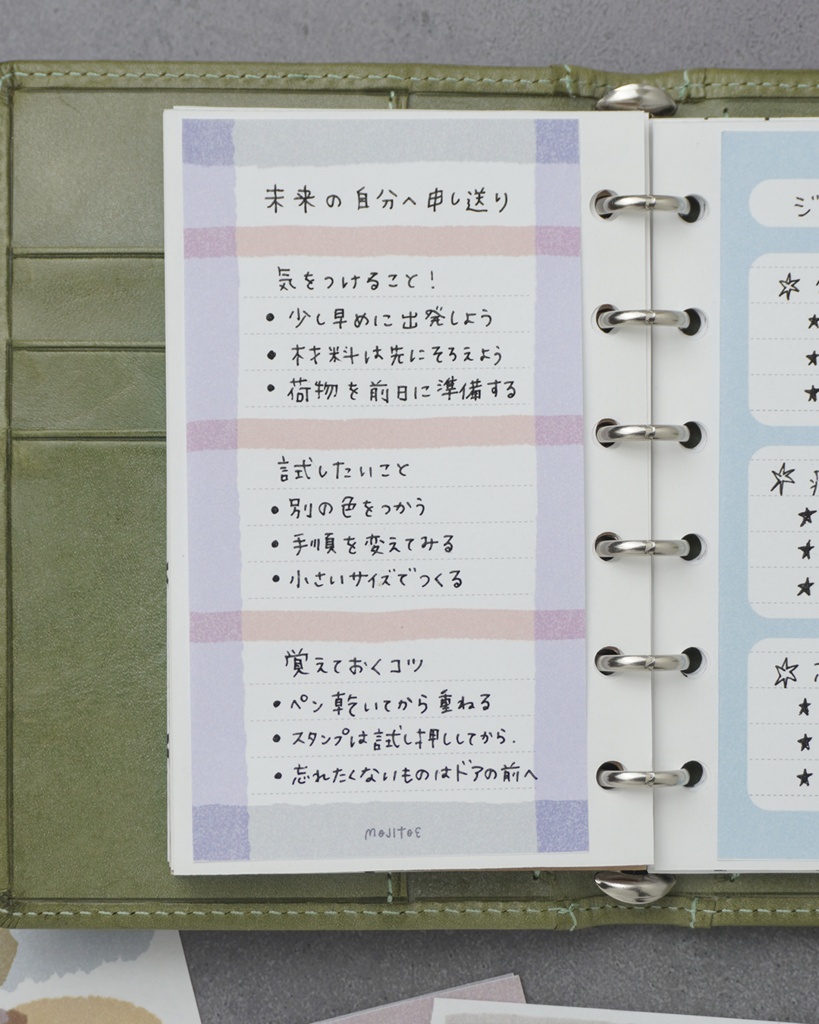 未来の自分へ申し送り
気をつけること!
• 少し早めに出発しよう
• 材料は先にそろえよう
• 荷物を前日に準備する
試したいこと
• 別の色をつかう
• 手順を変えてみる
• 小さいサイズでつくる
覚えておくコツ
• ペン乾いてから重ねる
• スタンプは試し押ししてから.
• 忘れたくないものはドアの前へ
mojitoe
ジ